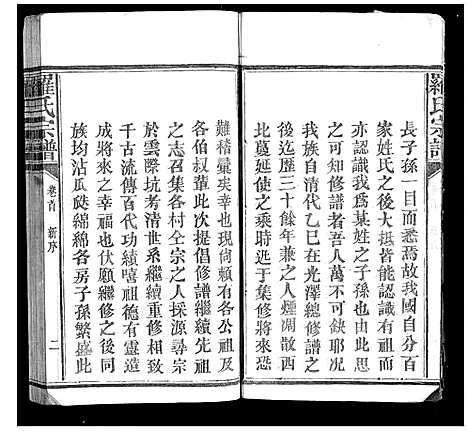 羅氏宗譜
長子孫一目而悉焉故我國自分百
家姓氏之後大抵皆能認識有祖
亦認識我為某姓之子孫也由此思
之可知修譜者吾人萬不可缺耶況
我族自清代乙巳在光澤總修譜之
後迄歷三十餘年兼之人煙凋散西
北蔓延使之乘時延于集修將來
難稽彙矣幸也現尚賴有各公祖
各伯叔輩此次提倡修譜繼續先祖
之志召集各村仝宗之人採源尋宗
於雲際坑考清世系繼續重修相傳
千古流傳百代功績嘻祖德有靈造
成將來之幸福也伏願修之後同
族均沾瓜瓞綿綿各房子孫繁盛此
羅氏宗譜
卷首
新序
二